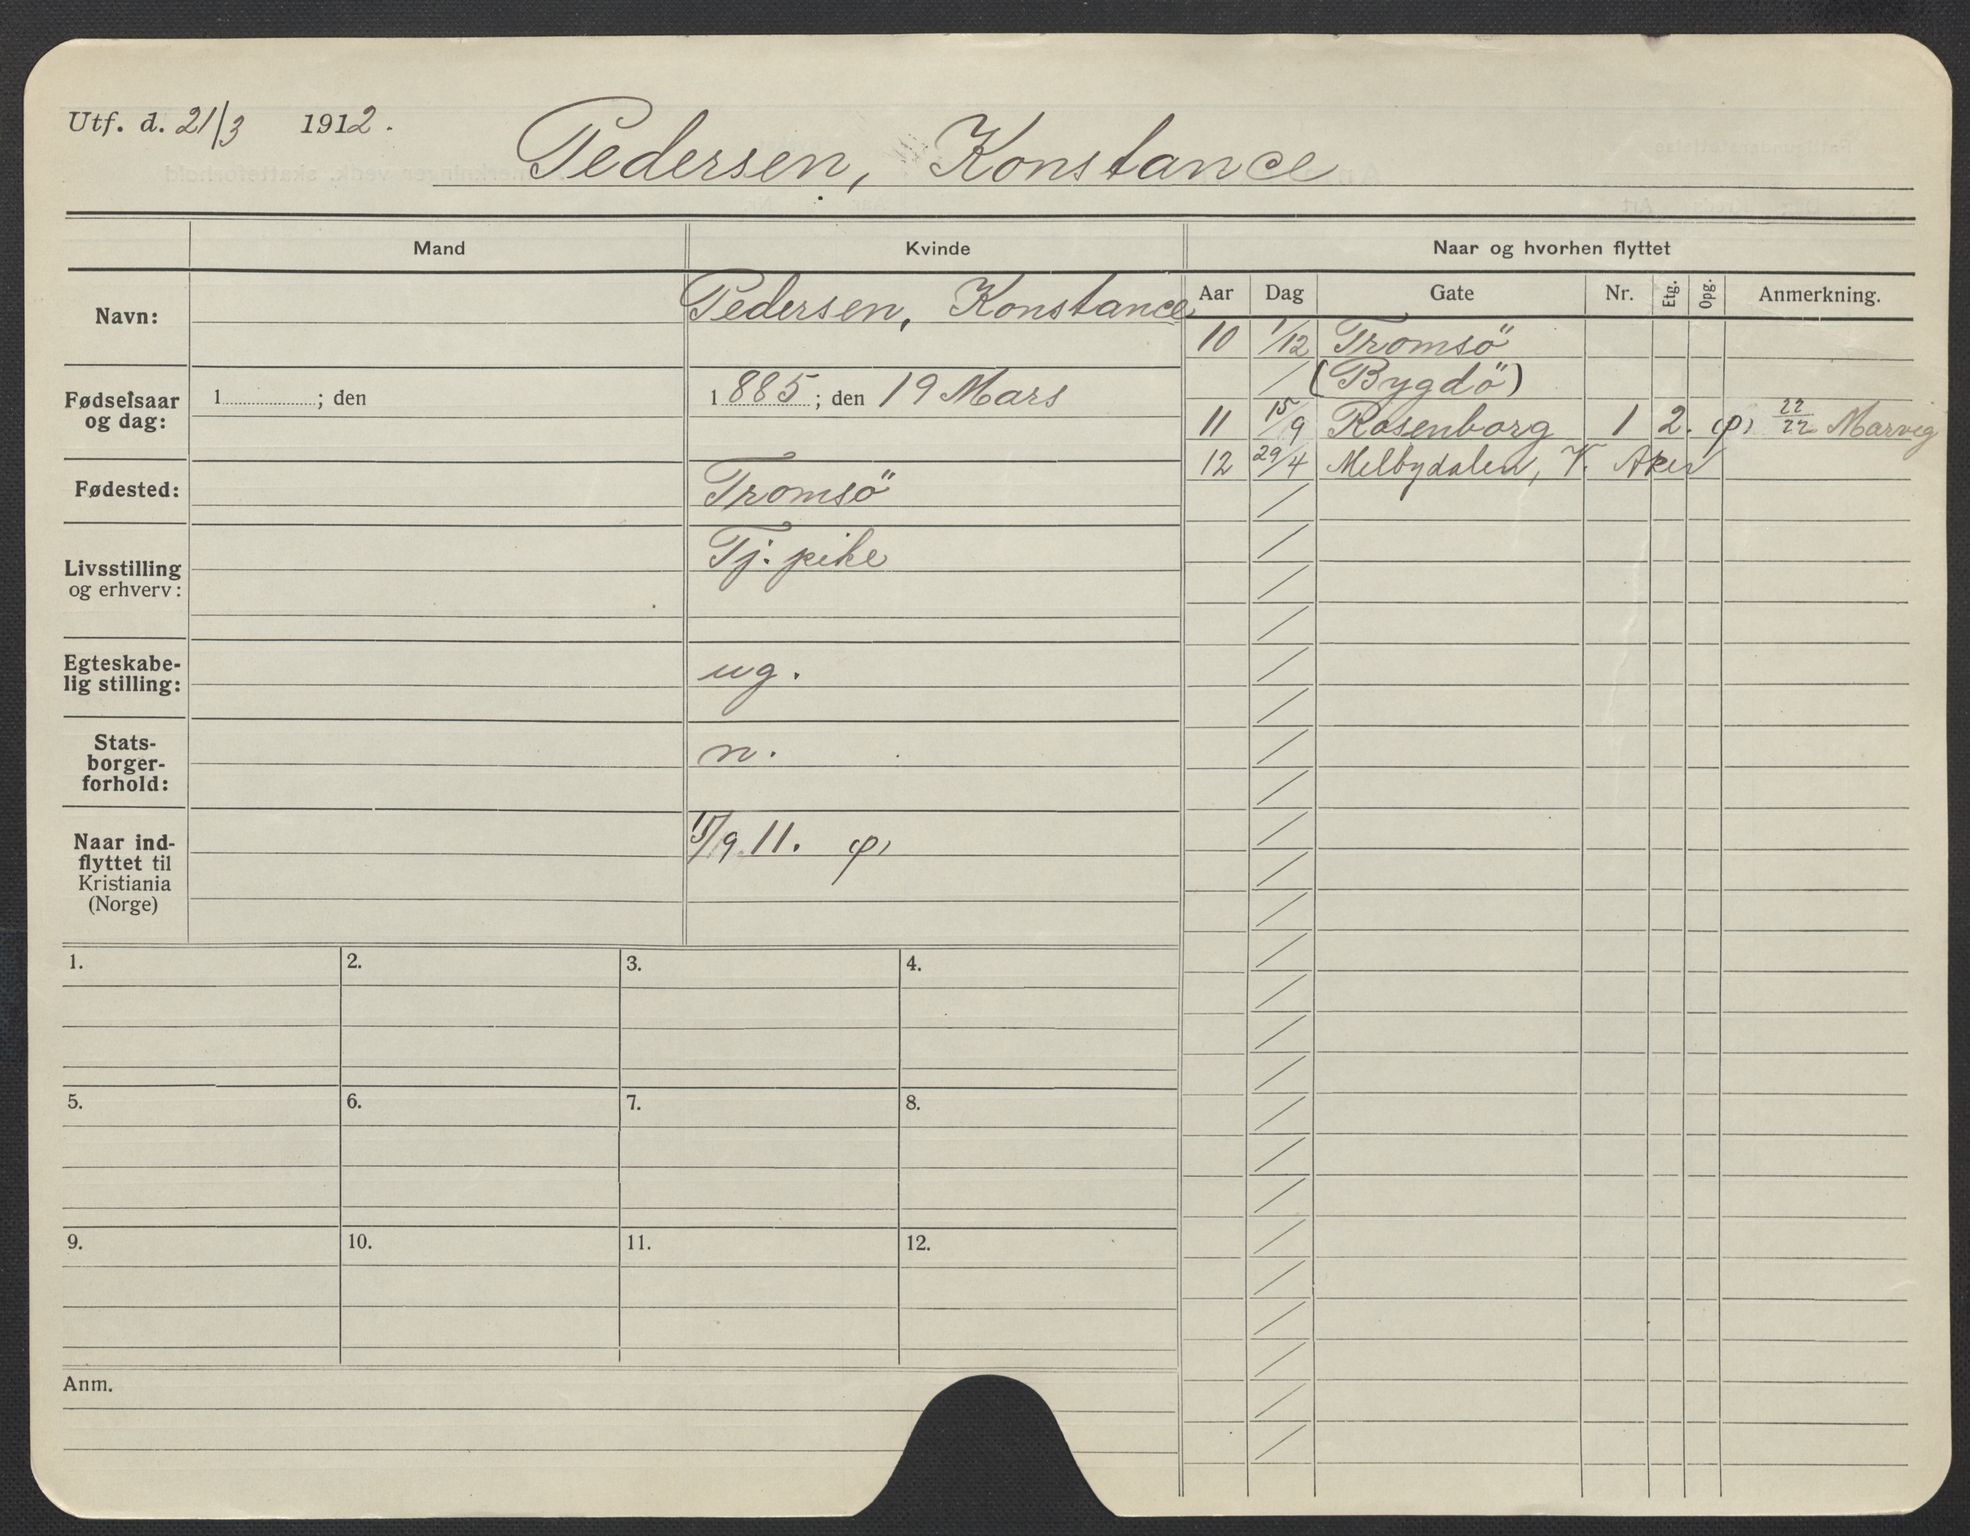 Utf. d. 21/3 1912.
Pedersen, Konstance
Mand
Kvinde
Naar og hvorhen flyttet
Navn:
Pedersen, Konstance
Aar Dag Gate Nr. Etg. Opg. Anmerkning.
10 1/12 Tromsö
(Bygdö)
11 15/9 Rosenborg 1 2. 22/22 Marveg
12 29/4 Melbydalen, V. Aker
Fødselsaar
og dag:
1 ; den
1885; den 19 Mars
Fødested:
Tromsö
Livsstilling
og erhverv:
Tj. pike
Egteskabe-
lig stilling:
ug.
Stats-
borger-
forhold:
n.
Naar ind-
flyttet til
Kristiania
(Norge)
15/9 11.
1. 2. 3. 4.
5. 6. 7. 8.
9. 10. 11. 12.
Anm.